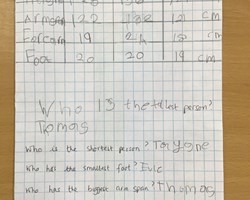 Armspan 122 138 121 cm
Forearm 19 24 18 cm
Foot 20 20 19 cm
Who is the tallest person?
Thomas
Who is the shortest person?
Who has the smallest foot? Evie
Who has the biggest arm span? Thomas